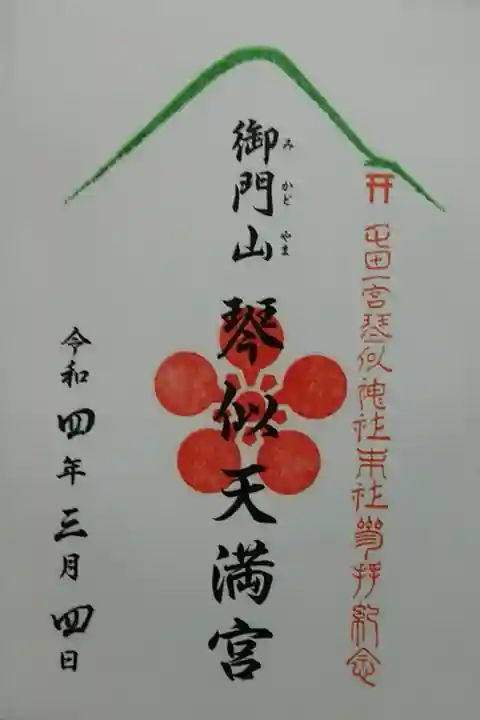 屯田一宮琴似神社末社参拝紀念
御門山 琴似天満宮
みかどやま
令和四年三月四日